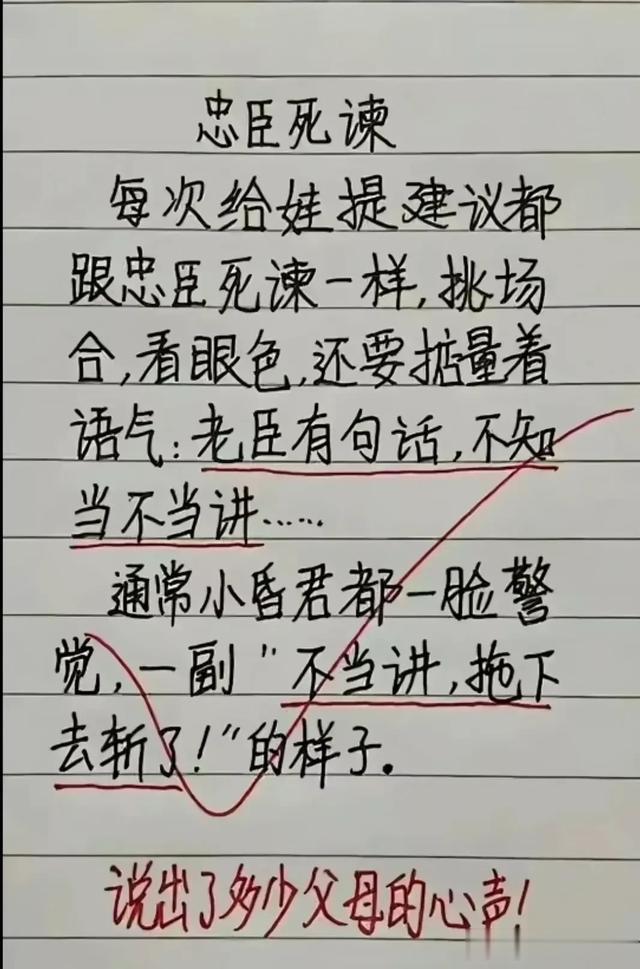 忠臣死谏
每次给娃提建议都
跟忠臣死谏一样,挑场
合,看眼色,还要掂量着
语气:老臣有句话,不知
当不当讲……
通常小昏君都一脸警
觉,一副"不当讲,拖下
去斩了!"的样子.
说出了多少父母的心声!